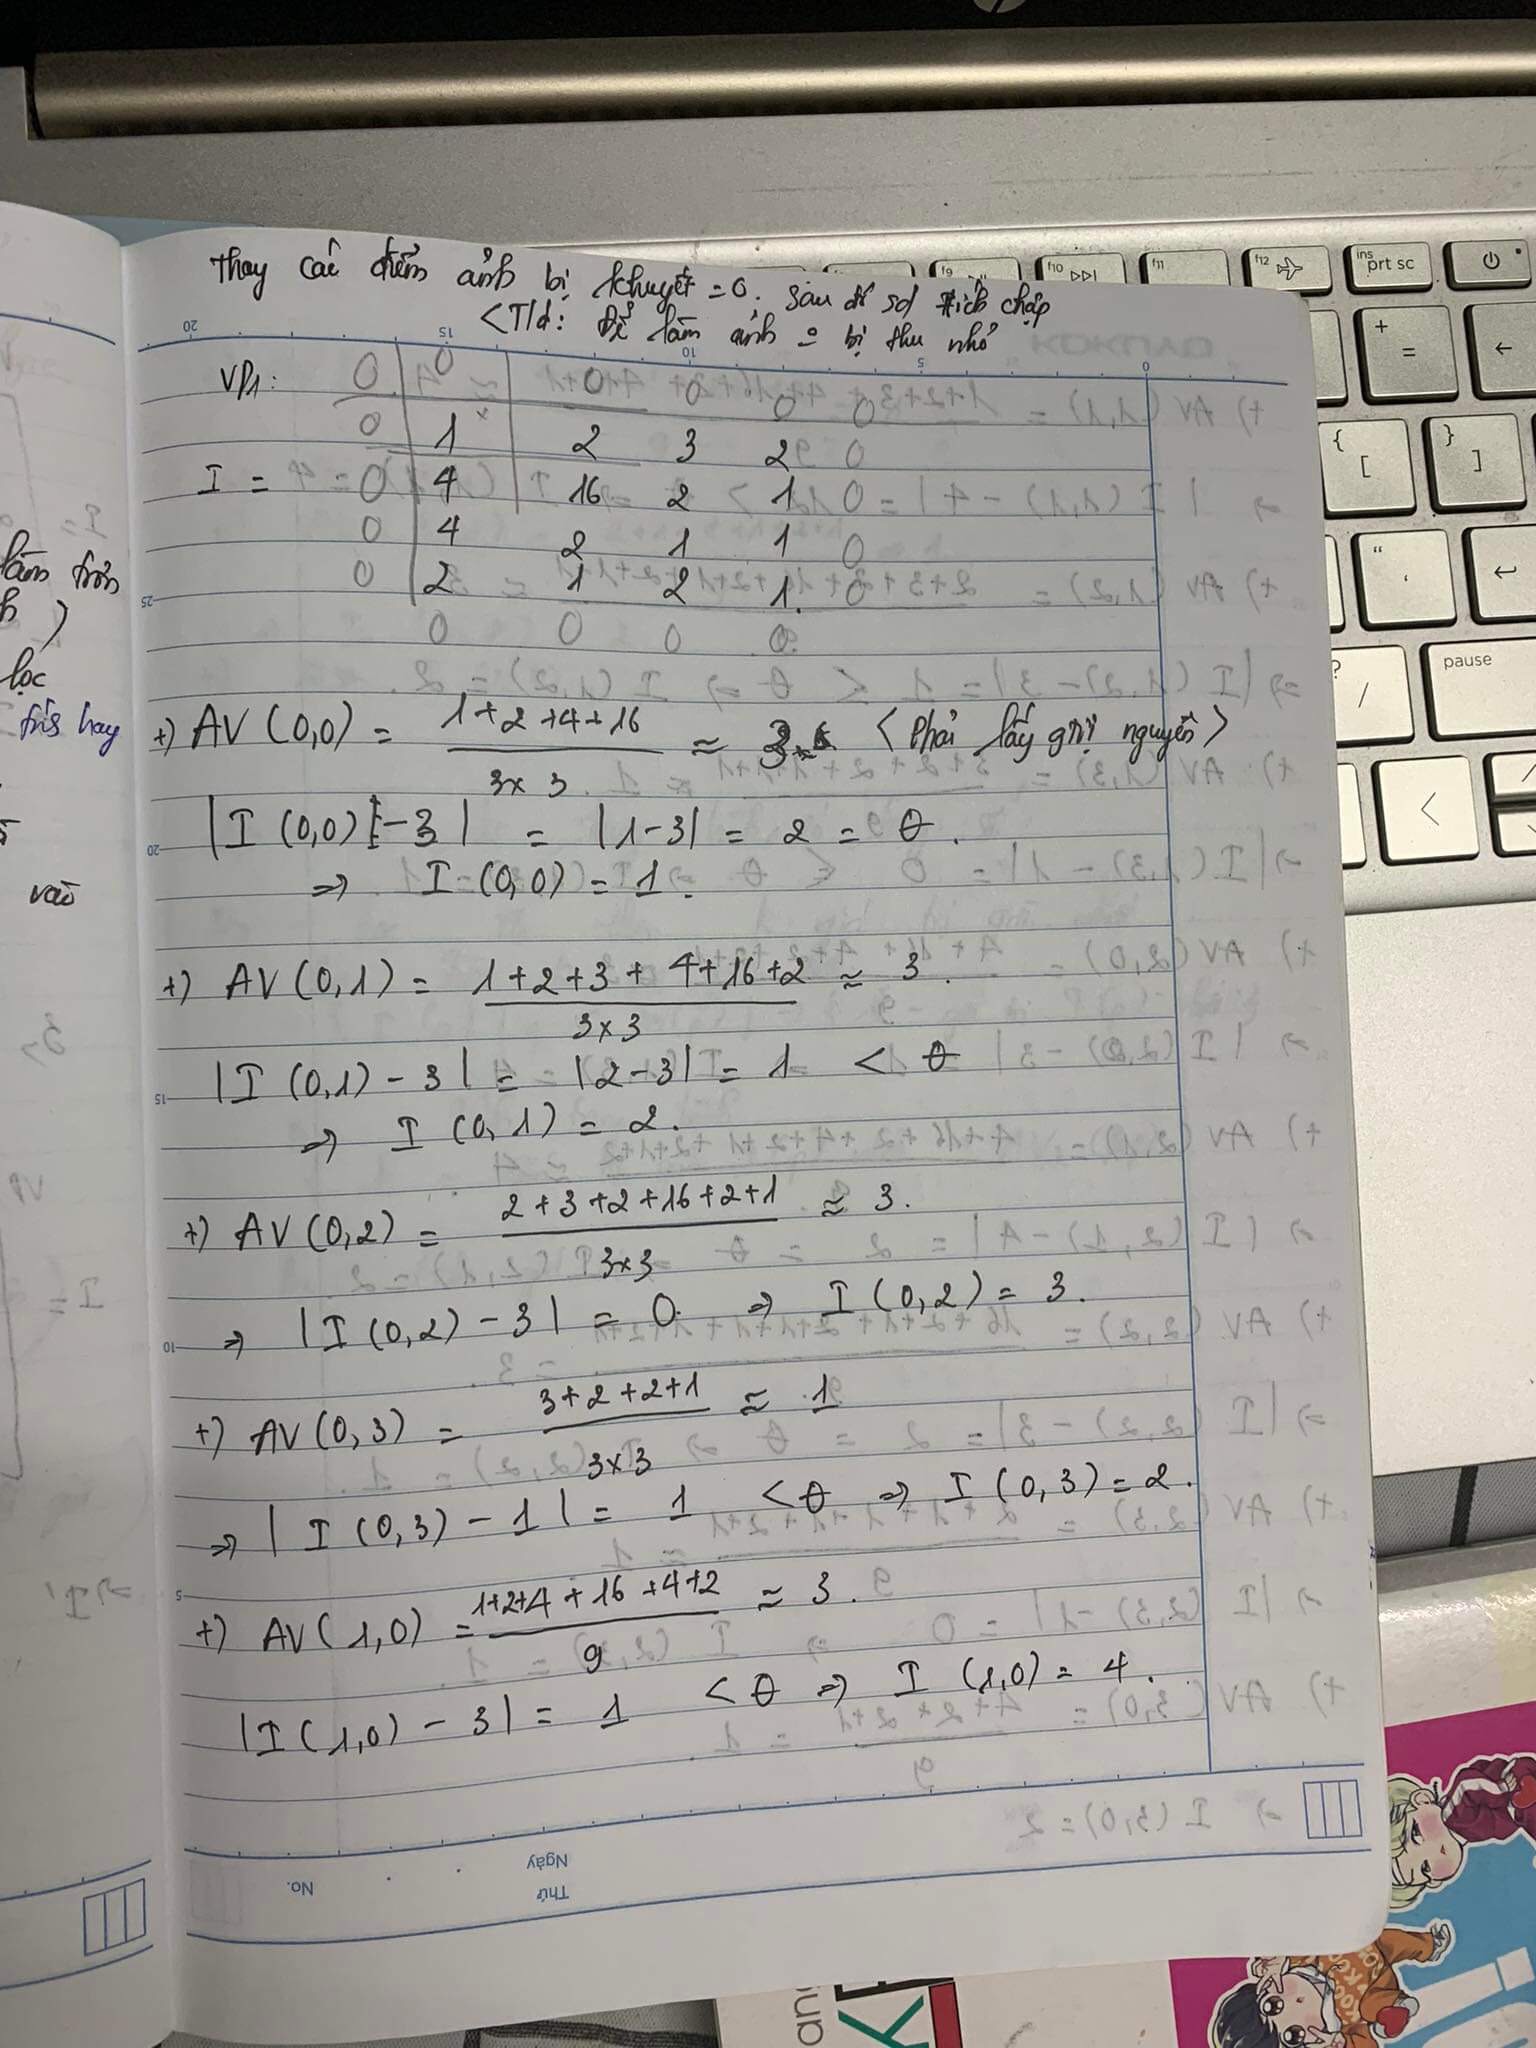 Thay các điểm ảnh bị khuyết = 0. Sau đó sd tích chập
<T/d: Để làm ảnh bị thu nhỏ
VD1: 0 0 0 0 0 0
0 1 2 3 2 0
I = 0 4 16 2 1 0
0 4 2 1 1 0
0 2 1 2 1 0
0 0 0 0
+) AV(0,0) = (1+2+4+16)/(3×3) ≈ 3 <Phải lấy giá nguyên>
|I(0,0) - 3| = |1-3| = 2 = θ.
⇒ I(0,0) = 1.
+) AV(0,1) = (1+2+3+4+16+2)/(3×3) ≈ 3.
|I(0,1) - 3| = |2-3| = 1 < θ
⇒ I(0,1) = 2.
+) AV(0,2) = (2+3+2+16+2+1)/(3×3) ≈ 3.
⇒ |I(0,2) - 3| = 0. ⇒ I(0,2) = 3.
+) AV(0,3) = (3+2+2+1)/(3×3) ≈ 1
⇒ |I(0,3) - 1| = 1 < θ ⇒ I(0,3) = 2.
+) AV(1,0) = (1+2+4+16+4+2)/9 ≈ 3.
|I(1,0) - 3| = 1 < θ ⇒ I(1,0) = 4.
No.
Thứ
Ngày
làm trơn
lọc
vào
f9
f10
f11
f12
ins
prt sc
+
=
{
[
}
]
?
/
pause
<